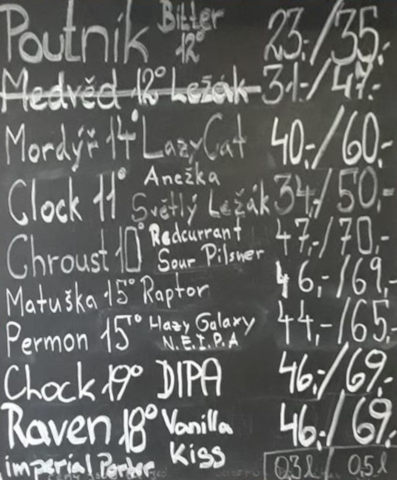 Poutník Bitter 12° 23,-/35,-
Medvěd 12° Ležák 31,-/47,-
Mordýř 14° LazyCat 40,-/60,-
Clock 11° Anežka Světlý Ležák 34,-/50,-
Chroust 10° Redcurrant Sour Pilsner 47,-/70,-
Matuška 15° Raptor 46,-/69,-
Permon 15° Hazy Galaxy N.E.I.P.A 44,-/65,-
Chock 19° DIPA 46,-/69,-
Raven 18° Vanilla Kiss 46,-/69,-
imperial Porter 0,3l 0,5l